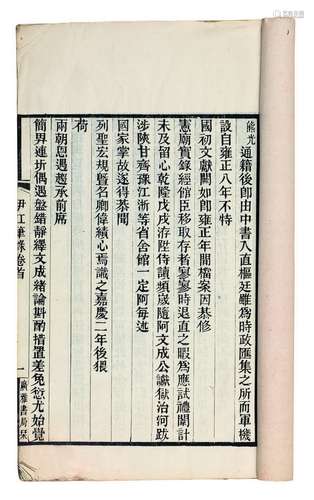 熊光通籍後卽由中書入直樞廷雖爲時政匯集之所而軍機
設自雍正八年不特
國初文獻闕如卽雍正年間檔案因恭修
憲廟實錄經館臣移取存者寥寥時退直之暇爲應試禮闈計
未及留心乾隆戊戌洊陞侍讀頻歲隨阿文成公讞獄治何跋
涉陜甘齊豫江浙等省舍館一定阿每述
國家掌故遂得恭聞
列聖宏規曁名卿偉績心焉識之嘉慶二年後猥
荷
兩朝恩遇趨承前席
簡畀連圻偶遇盤錯靜繹文成緒論斟酌措置差免愆尤始覺
伊江筆錄卷首
一
廣雅書局栞